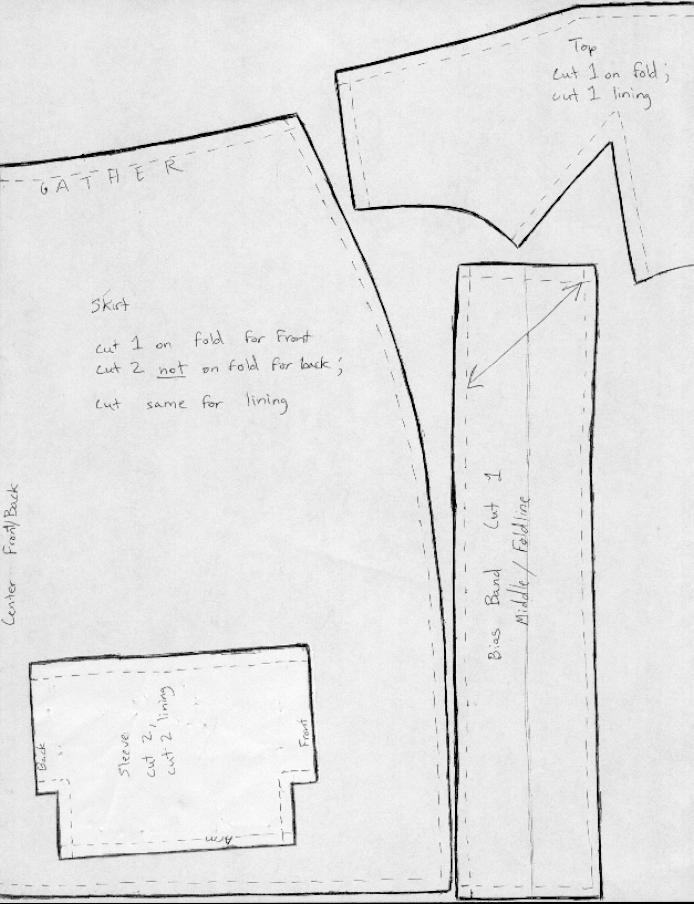 Top
cut 1 on fold;
cut 1 lining
GATHER
Skirt
cut 1 on fold for Front
cut 2 not on fold for back;
cut same for lining
Center Front/Back
Bias Band Cut 1
Middle/Foldline
Sleeve
cut 2,
cut 2 lining
Back
Front
Arm